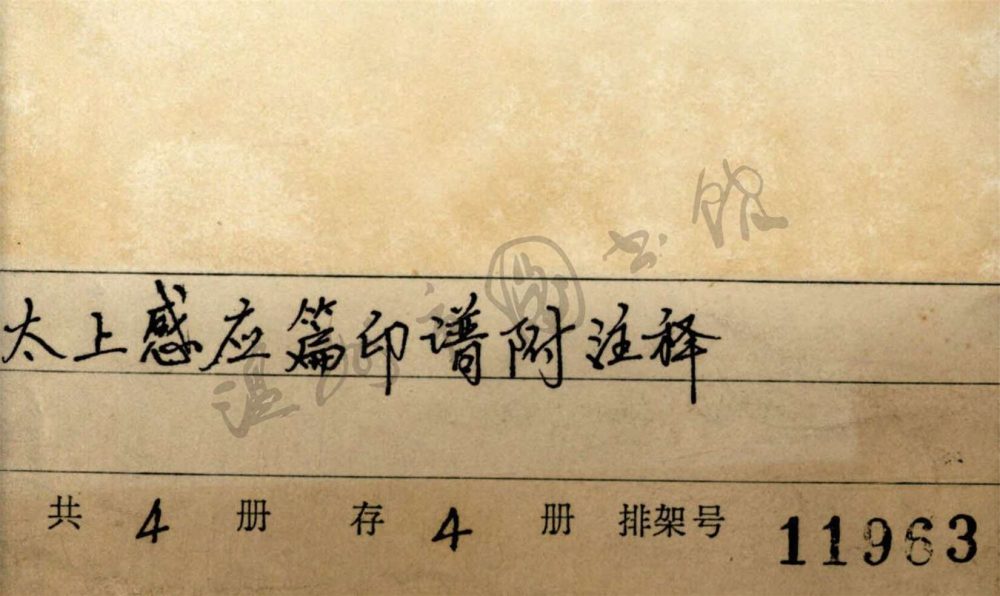 太上感应篇印谱附注释
共 4 册 存 4 册 排架号 11963
温州市圖书馆